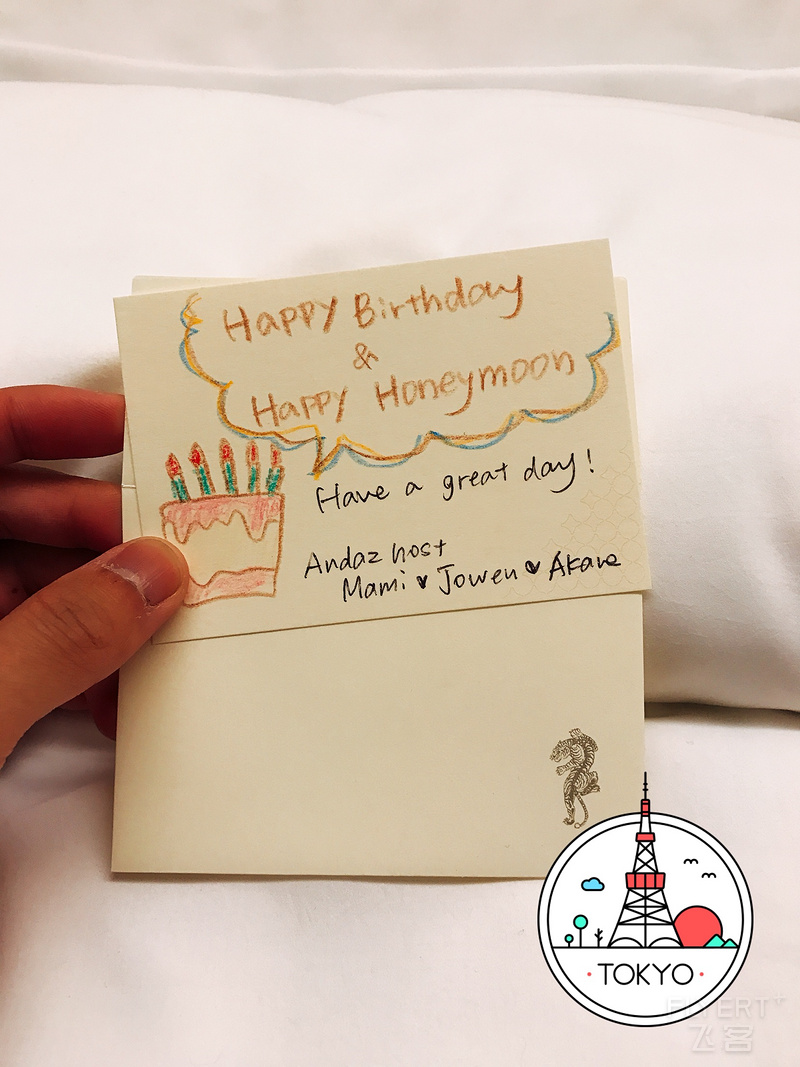 Happy Birthday
&
Happy Honeymoon
Have a great day!
Andaz host
Mami ♥ Jowen ♥ Akane
TOKYO
FLYERT+
飞客